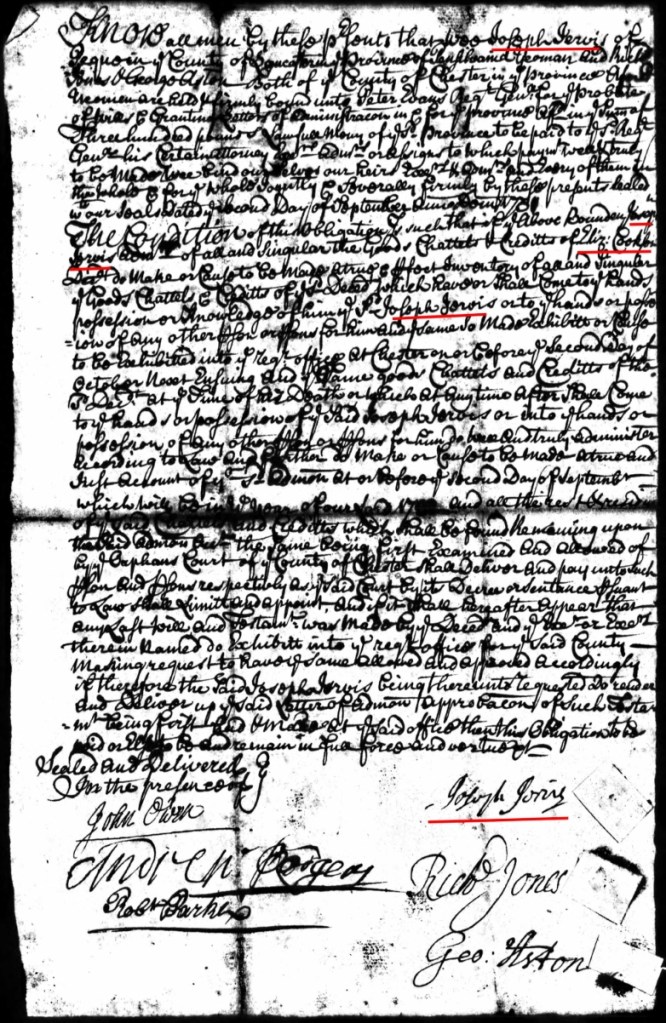 KNOW all men by these p^rsents that wee Joseph Jervis of
Pequein y^e County of Lancaster y^e Province of Pensilvania Yeoman and Rich^d
Jones & George Aston Both of y^e County of Chester in y^e Province Afs^d
Yeomen are held & firmly bound unto Peter Evans Reg^r Gen^ll for y^e Probate
of Wills & Granting Letters of Administracon in & for y^e Province Afs^d in y^e Sum of
Three hundred pounds Lawfull Mony of y^s Province to be paid to y^e s^d Reg^r
Gen^ll his Certain Attorney Exe^rs Adm^rs or Assigns to which paym^t well & truly
to be Made Wee bind our selves our heirs Exe^rs & Adm^rs and Every of them in
the whole & for y^e whole Joyntly & Severally firmly by these presents Sealed
w^th our Seals Dated y^e Second Day of September Annoq Dom
The Condition of this Obligation is such that if y^e Above Bounden Joseph
Jervis Adm^r of all and Singular the Goods Chattels & Creditts of Eliz: Cookson
Dec^d do Make or Cause to be Made A true & p^rfect Inventory of all and Singular
y^e Goods Chattels & Creditts of y^e s^d Deced which have or shall Come to y^e hands
possession or Knowledge of him y^e s^d Joseph Jervis or to y^e hands or posses
=ion of any other p^rson or p^rsons for him and y^e same so Made Exhibitt or Cause
to be Exhibited into y^e Reg^rs office At Chester on or before y^e Second Day of
October Next Ensuing And y^e Same goods Chattels and Creditts of the
s^d Dec^d At y^e Time of her Death or which At any time After Shall Come
to y^e hands or possession of y^e Said Joseph Jervis or into y^e hands or
possession of any other p^rson or p^rsons for him do well and truly administer
According to Law And further do Make or Cause to be Made a true and
Just Account of y^e s^d Admon At or before y^e Second Day of Septemb^r
which will be in y^e year of our Lord and all the rest & resid
of y^e Said Chattels and Creditts which shall be found Remaining upon
the said Admon Acct the same being first Examined And Allowed of
by y^e Orphans Court of y^e County of Chester Shall Deliver and pay unto such
p^rson And p^rsons respectively as y^e Said Court by its Decree or Sentence p^rsuant
to Law Shall Limitt and Appoint And if it Shall hereafter Appear that
any Last Will And Testam^t was Made by y^e Deced And y^e Exe^r or Exe^rs
therein Named do Exhibitt into y^e reg^rs office for y^e Said County
Making request to have y^e same allowed and Approved Accordingly
if therefore the Said Joseph Jervis being thereunto requested Do render
And Deliver up y^e Said Letter of Admon approbacon of such Testam
=nt being first had & Made At y^e Said office then this Obligation to be
void or Else to be and remain in full force and vertue
Sealed and Delivered
In the presence of
Joseph Jervis
John Owen
Andrew Rodgers
Rich^d Jones
Rob^t Parke
Geo: Aston